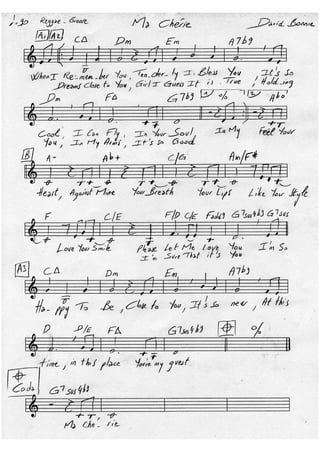 ♩=90 Reggae-Groove Ma Cherie David Bonnin
A1 A2 C△ Dm Em A7b9
When I Re-mem-ber You, Ten-der-ly I Bless You It's So
Dreams Close to You, Girl I Guess It is True, Hold_ing
Dm F△ G7b9 %
Cool, I Can Fly, In Your Soul, In My Feel Your
You, In My Arms, It's So Good
B A- Ab+ C/G Am/F#
Heart, Against Mine Your Breath Your Lips Like Your Style
F C/E F/D C/E G7sus4b9 G7sus
Love Your Smile Please Let Me Love You I'm So
I'm Sure That it's You
A3 C△ Dm Em A7b9
Ha-ppy To Be, Close to You, It's so new, At this
D D/E F△ G7sus4b9 %
time, in this place You're my guest
Coda G7sus4b9
Ma Che-rie